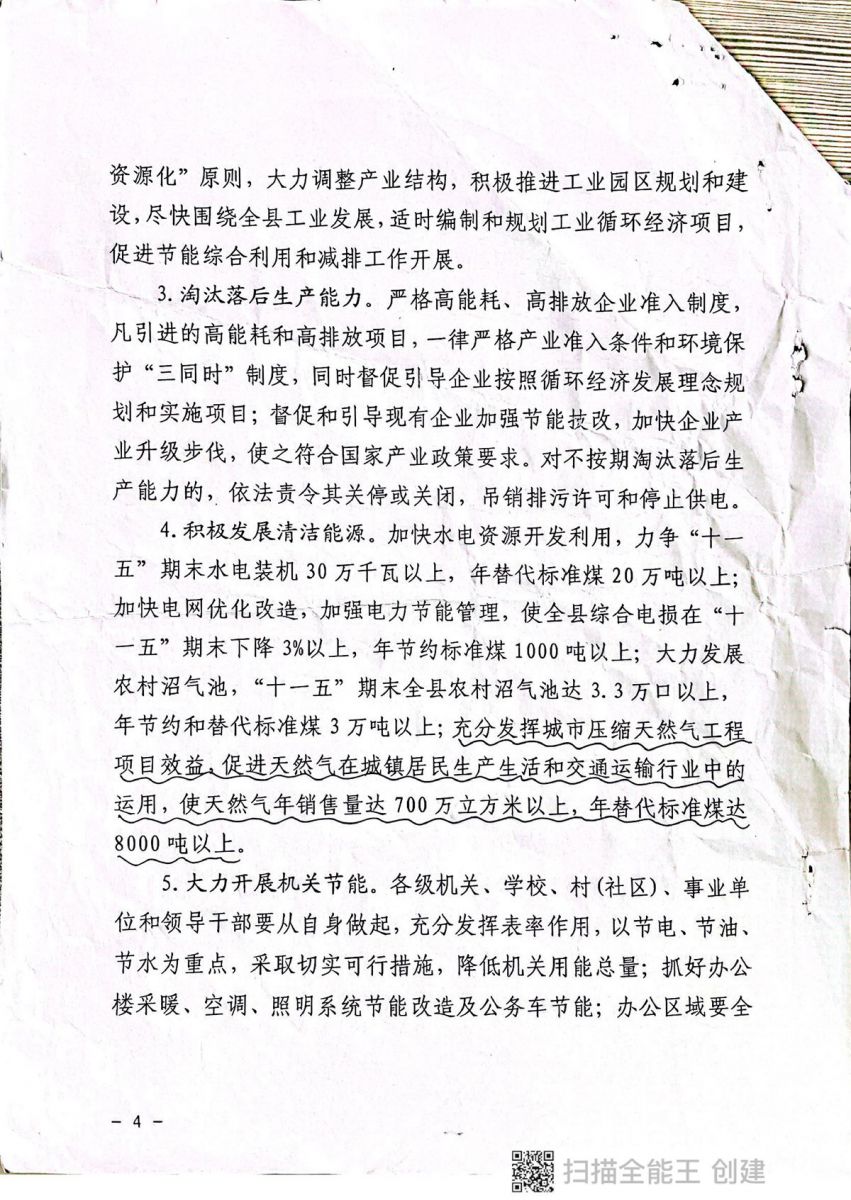 资源化”原则，大力调整产业结构，积极推进工业园区规划和建
设，尽快围绕全县工业发展，适时编制和规划工业循环经济项目，
促进节能综合利用和减排工作开展。
3.淘汰落后生产能力。严格高能耗、高排放企业准入制度，
凡引进的高能耗和高排放项目，一律严格产业准入条件和环境保
护“三同时”制度，同时督促引导企业按照循环经济发展理念规
划和实施项目；督促和引导现有企业加强节能技改，加快企业产
业升级步伐，使之符合国家产业政策要求。对不按期淘汰落后生
产能力的，依法责令其关停或关闭，吊销排污许可和停止供电。
4.积极发展清洁能源。加快水电资源开发利用，力争“十一
五”期末水电装机30万千瓦以上，年替代标准煤20万吨以上；
加快电网优化改造，加强电力节能管理，使全县综合电损在“十
一五”期末下降3%以上，年节约标准煤1000吨以上；大力发展
农村沼气池，“十一五”期末全县农村沼气池达3.3万口以上，
年节约和替代标准煤3万吨以上；充分发挥城市压缩天然气工程
项目效益，促进天然气在城镇居民生产生活和交通运输行业中的
运用，使天然气年销售量达700万立方米以上，年替代标准煤达
8000吨以上。
5.大力开展机关节能。各级机关、学校、村(社区)、事业单
位和领导干部要从自身做起，充分发挥表率作用，以节电、节油、
节水为重点，采取切实可行措施，降低机关用能总量；抓好办公
楼采暖、空调、照明系统节能改造及公务车节能；办公区域要全
- 4 -
扫描全能王 创建